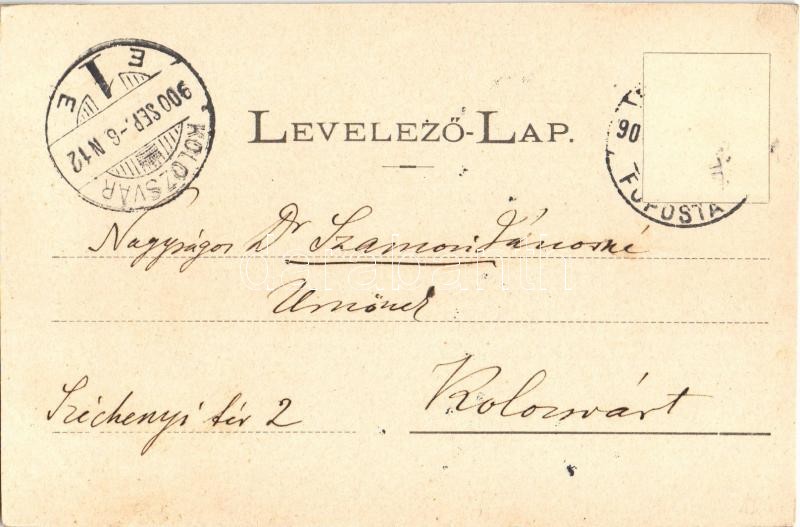 KOLOZSVÁR
900 SEP. -6. N 12
1
E E
LEVELEZŐ-LAP.
90
FŐPOSTA
Nagyságos Dr Szamosi Jánosné
Urnőnek
Kolozsvárt
Széchenyi tér 2
darabanth